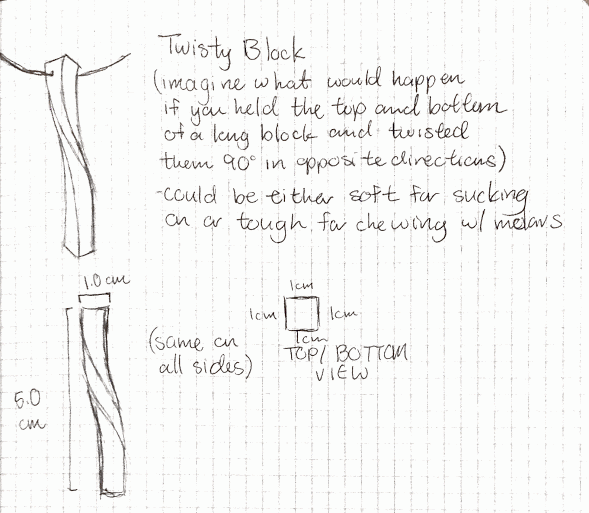 Twisty Block
(imagine what would happen
if you held the top and bottom
of a long block and twisted
them 90° in opposite directions)
-could be either soft for sucking
on or tough for chewing w/ molars
1.0 cm
1cm
1cm
1cm
1cm
(same on
all sides)
TOP/BOTTOM
VIEW
5.0
cm